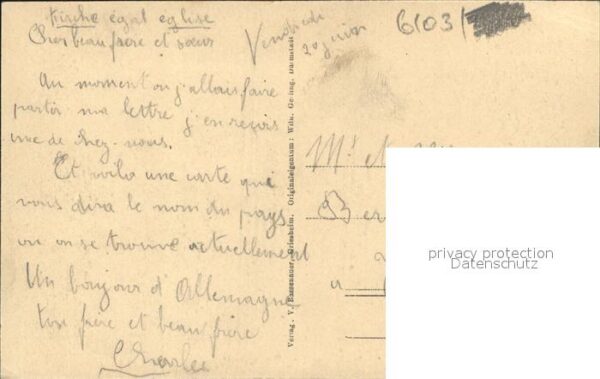 Kirche égal église
Cher beau frère et sœur
Vendredi
20 juin
6103/
Au moment où j'allais faire
partir ma lettre j'en reçois
une de chez-nous.
Et voila une carte qui
vous dira le nom du pays
ou on se trouve actuellement
Un bonjour d'Allemagne
ton frère et beau frère
Charles
Verlag. V. Griesheim. Originaleigentum: Wilh. Gerling, Darmstadt
Mr
Ber
a
privacy protection
Datenschutz